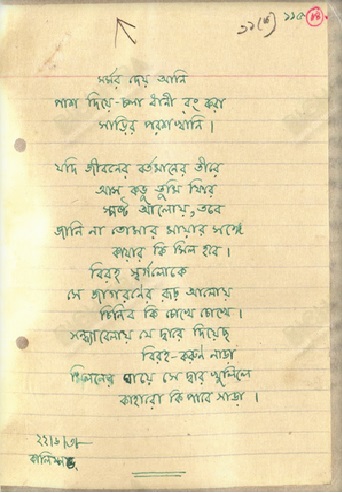 ১১(৫) ১১৫ ১৪
মর্মর দেয় আনি
পাশ দিয়ে-চলা ধানী রং করা
সাড়ির পরশখানি।
যদি জীবনের বর্তমানের তীরে
আস কভু তুমি ফিরে
স্পষ্ট আলোয়, তবে
জানি না তোমার মায়ার সঙ্গে
কায়ার কি মিল হবে।
বিরহ স্বর্গলোকে
সে জাগরণের রূঢ় আলোয়
চিনিব কি চোখে চোখে।
সন্ধ্যাবেলায় যে দ্বারে দিয়েছ
বিরহ-করুণ নাড়া
মিলনের ঘায়ে সে দ্বার খুলিলে
কাহারো কি পাবে সাড়া।
২২/৬/৩৮
কালিম্পঙ